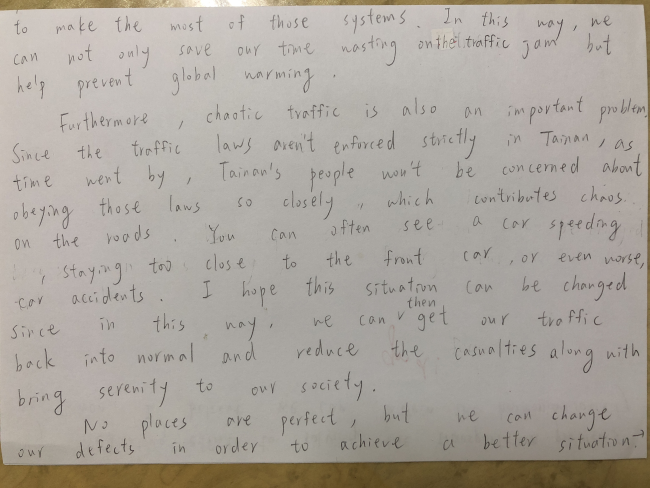 to make the most of those systems. In this way, we
can not only save our time wasting on the traffic jam but
help prevent global warming.
Furthermore, chaotic traffic is also an important problem.
Since the traffic laws aren't enforced strictly in Tainan, as
time went by, Tainan's people won't be concerned about
obeying those laws so closely, which contributes chaos
on the roads. You can often see a car speeding
, staying too close to the front car, or even worse,
car accidents. I hope this situation can be changed
then
since in this way, we can get our traffic
back into normal and reduce the casualties along with
bring serenity to our society.
No places are perfect, but we can change
our defects in order to achieve a better situation.→